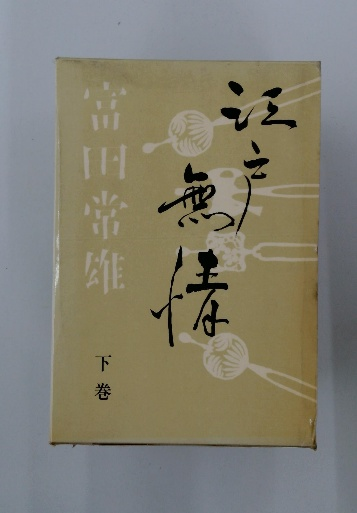 江戸
無情
富田常雄
下巻